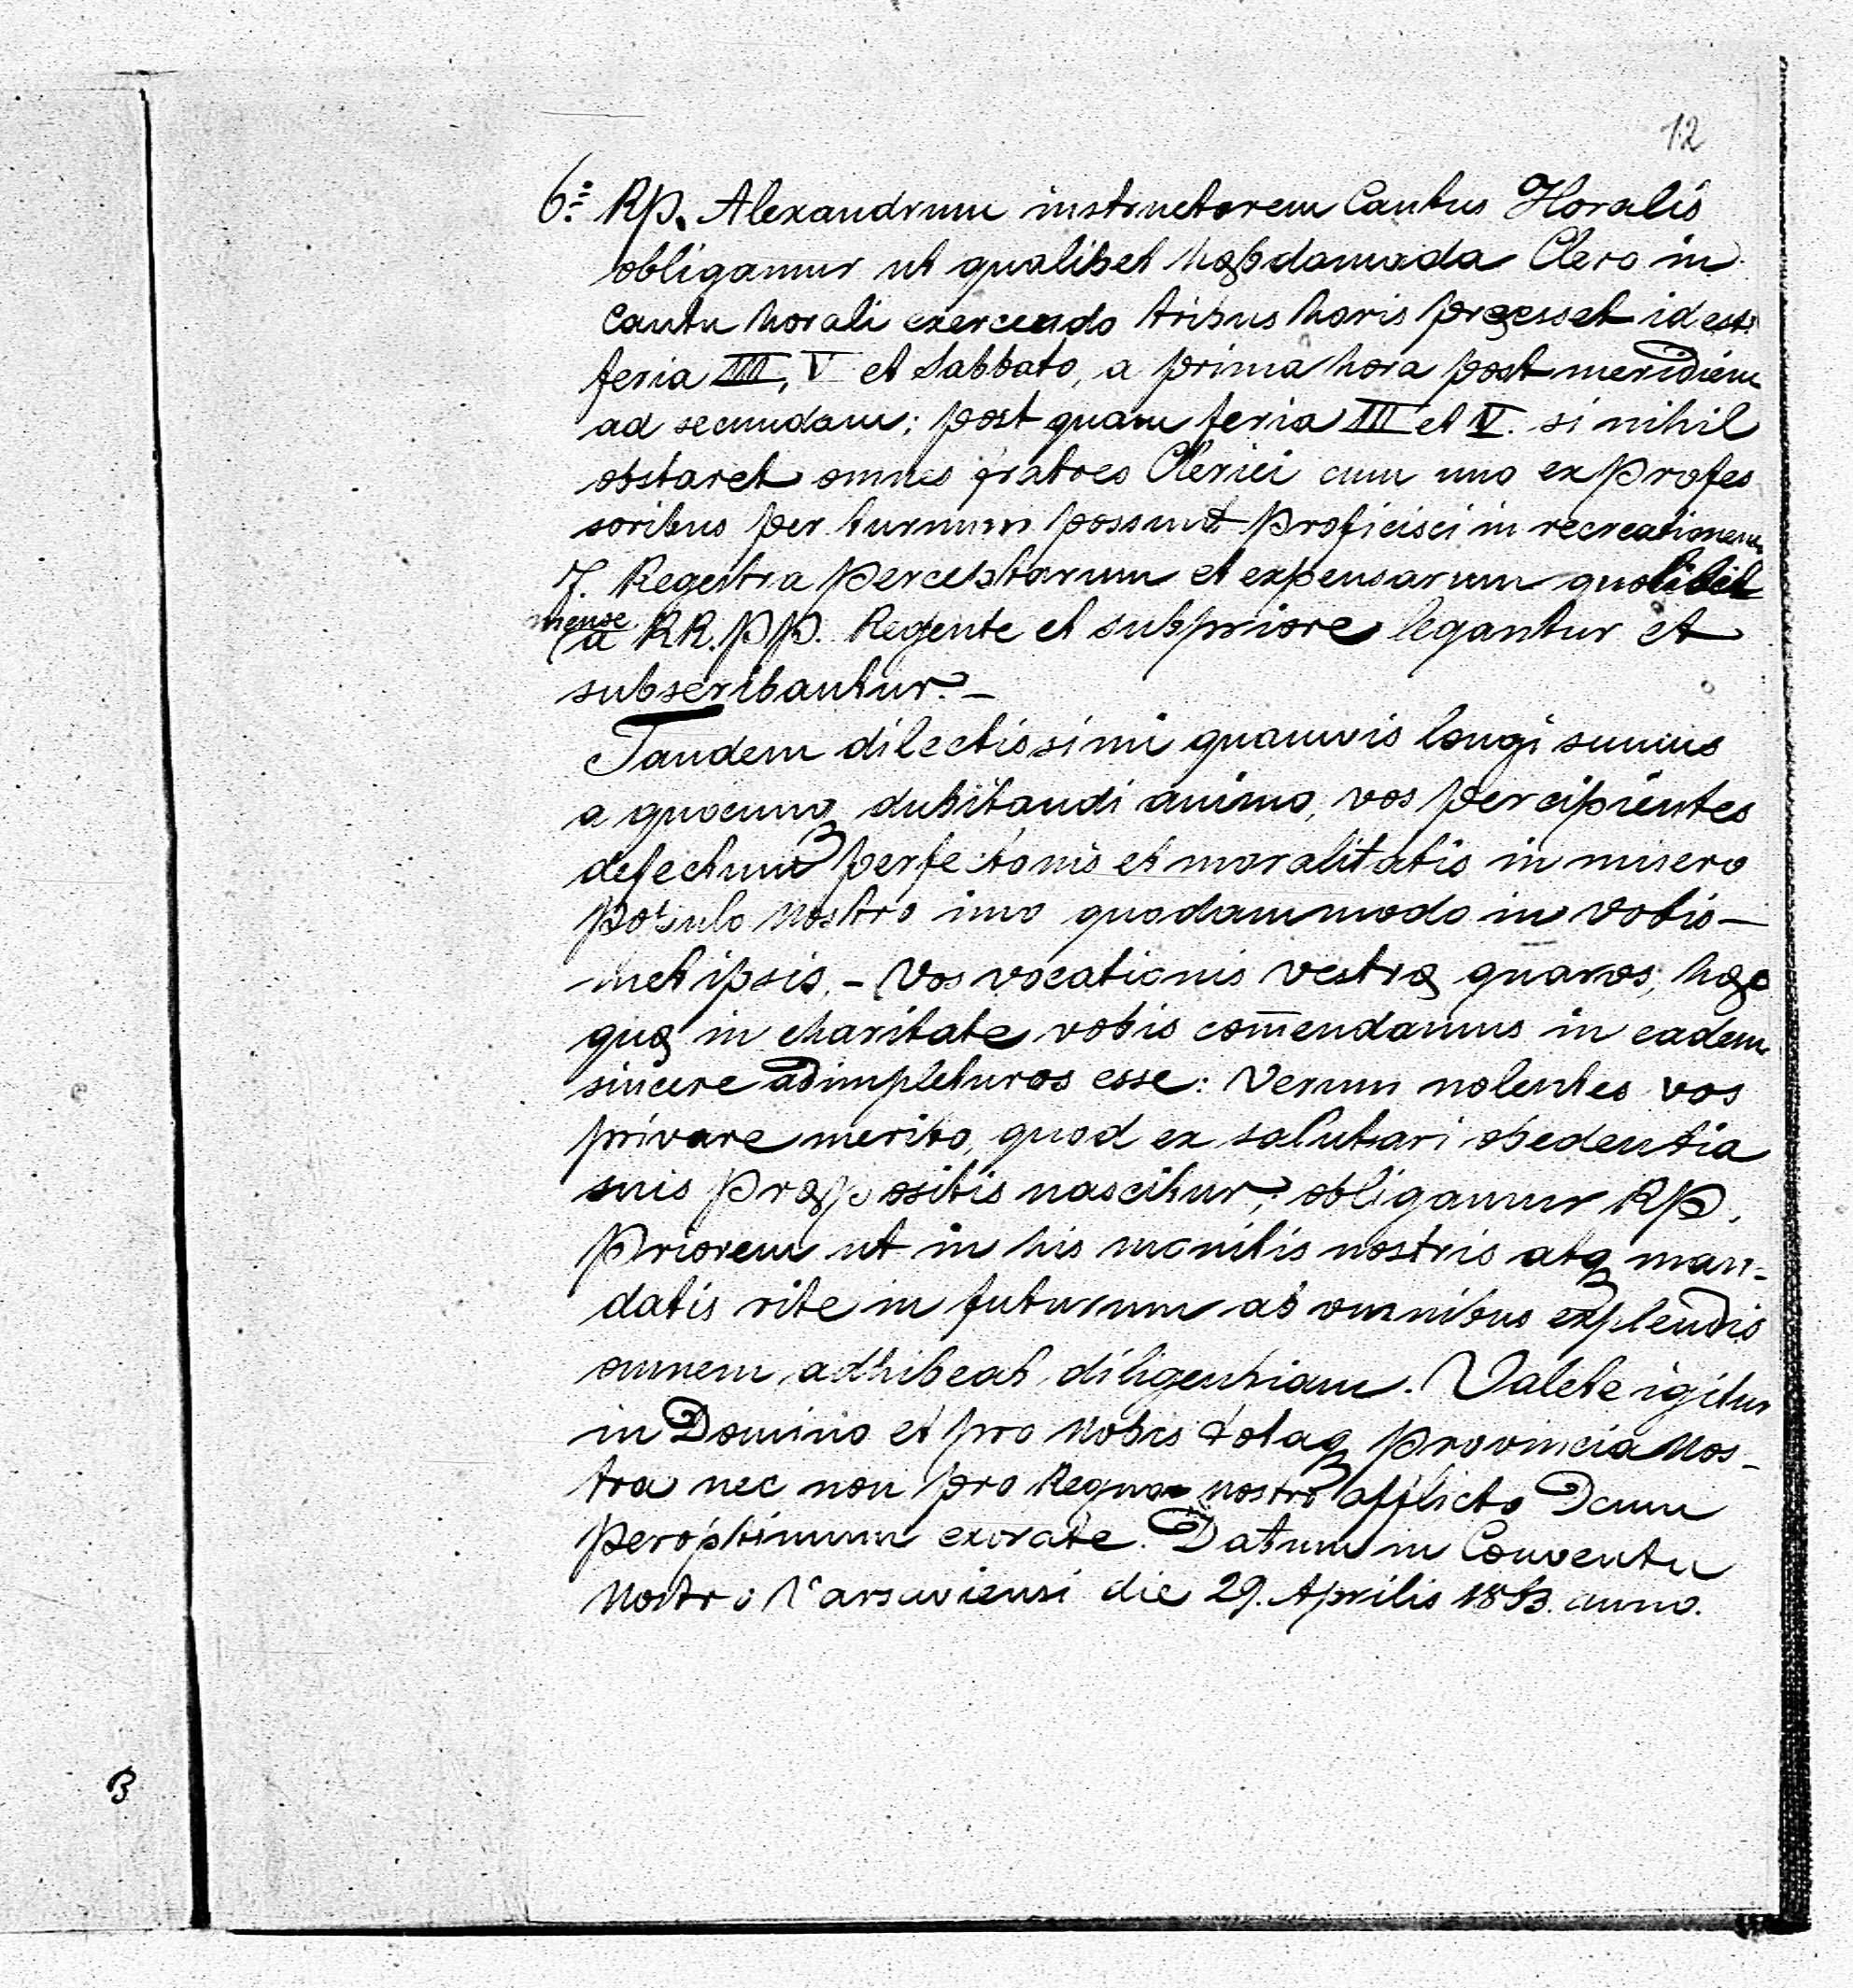 12
6. RP. Alexandrum instructorem Cantus Horalis
obligamur ut qualibet hębdomada Clero in
Cantu horali exercendo tribus horis pręesset id est:
feria III, V et Sabbato, a prima hora post meridiem
ad secundam; post quam feria III et V. si nihil
obstaret omnes fratres Clerici cum uno ex profes
soribus per turnum possunt proficisci in recreationem
7. Regestra perceptorum et expensarum quolibet
mense
a RR. PP. Regente et subpriore legantur et
subscribantur. –
Tandem dilectissimi quamvis longi sumus
a quocunq dubitandi animo, vos percipientes
defectum perfectionis et moralitatis in misero
populo nostro imo quodammodo in vobis –
metipsis, – Vos vocationis vestrę gnaros, hęc
quę in charitate vobis com̄endamus in eadem
sincere adimpleturos esse: Verum nolentes vos
privare merito, quod ex salutari obedentia
suis prępositis nascitur; obligamur RP.
Priorem ut in his monitis nostris atq man-
datis rite in futurum ab omnibus explendis
omnem adhibeat diligentiam. Valete igitur
in Domino et pro Nobis totaq provincia Nos-
tra nec non pro Regno nostro afflicto Deum
peroptimum exorate. Datum in Conventu
Nostro Varsaviensi die 29. Aprilis anno.
B